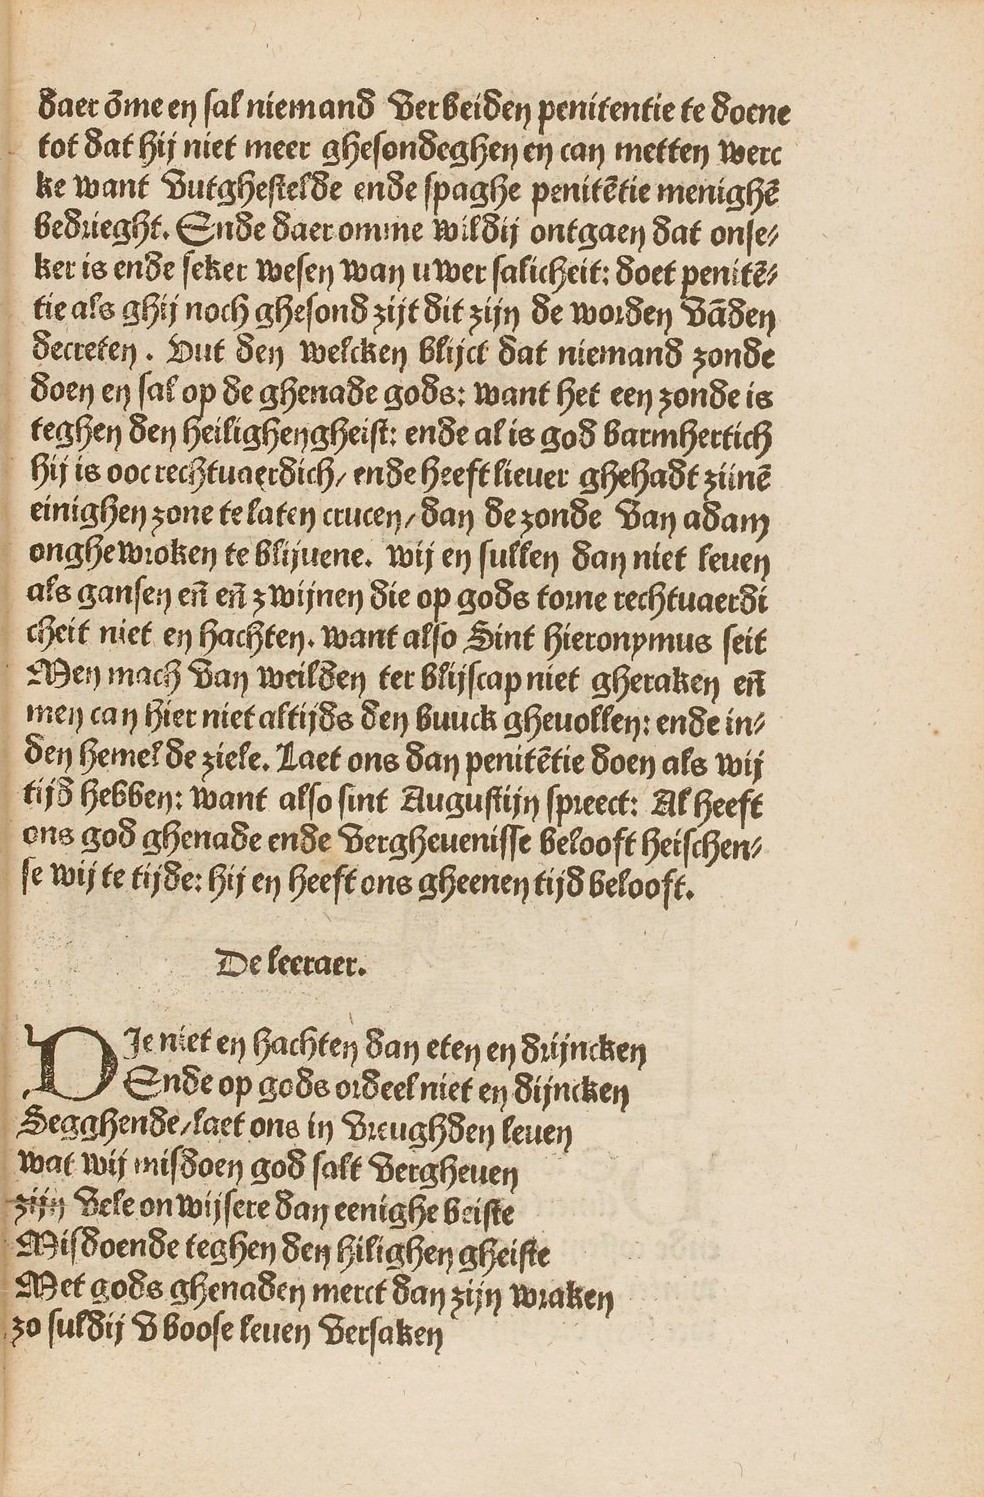 daer ōme en sal niemand verbeiden penitentie te doene
tot dat hij niet meer ghesondeghen en can metten werc
ke want vutghestelde ende spaghe penitētie menighē
bedrieght. Ende daer omme wildij ontgaen dat onse⸗
ker is ende seker wesen wan uwer salicheit: doet penitē⸗
tie als ghij noch ghesond zijt dit zijn de worden vāden
decreten. Vut den welcken blijct dat niemand zonde
doen en sal op de ghenade gods: want het een zonde is
teghen den heilighengheist: ende al is god barmhertich
hij is ooc rechtuaerdich/ ende heeft liever ghehadt zijnē
einighen zone te laten crucen/ dan de zonde van adam
onghewroken te blijuene. wij en sullen dan niet leuen
als gansen eñ eñ zwijnen die op gods torne rechtuaerdi
cheit niet en hachten. want also Sint hieronymus seit
Men mach van weilden ter blijscap niet gheraken eñ
men can hier niet altijds den buuck gheuollen: ende in⸗
den hemel de ziele. Laet ons dan penitētie doen als wij
tijd hebben: want also sint Augustijn spreect: Al heeft
ons god ghenade ende verghevenisse belooft heischen⸗
se wij te tijde: hij en heeft ons gheenen tijd belooft.
De leeraer.
DJe niet en hachten dan eten en drijncken
Ende op gods ordeel niet en dijncken
Segghende/ laet ons in vreughden leuen
wat wij misdoen god salt vergheuen
zijn vele onwijsere dan eenighe beiste
Misdoende teghen den hilighen gheiste
Met gods ghenaden merct dan zijn wraken
zo suldij v boose leuen versaken